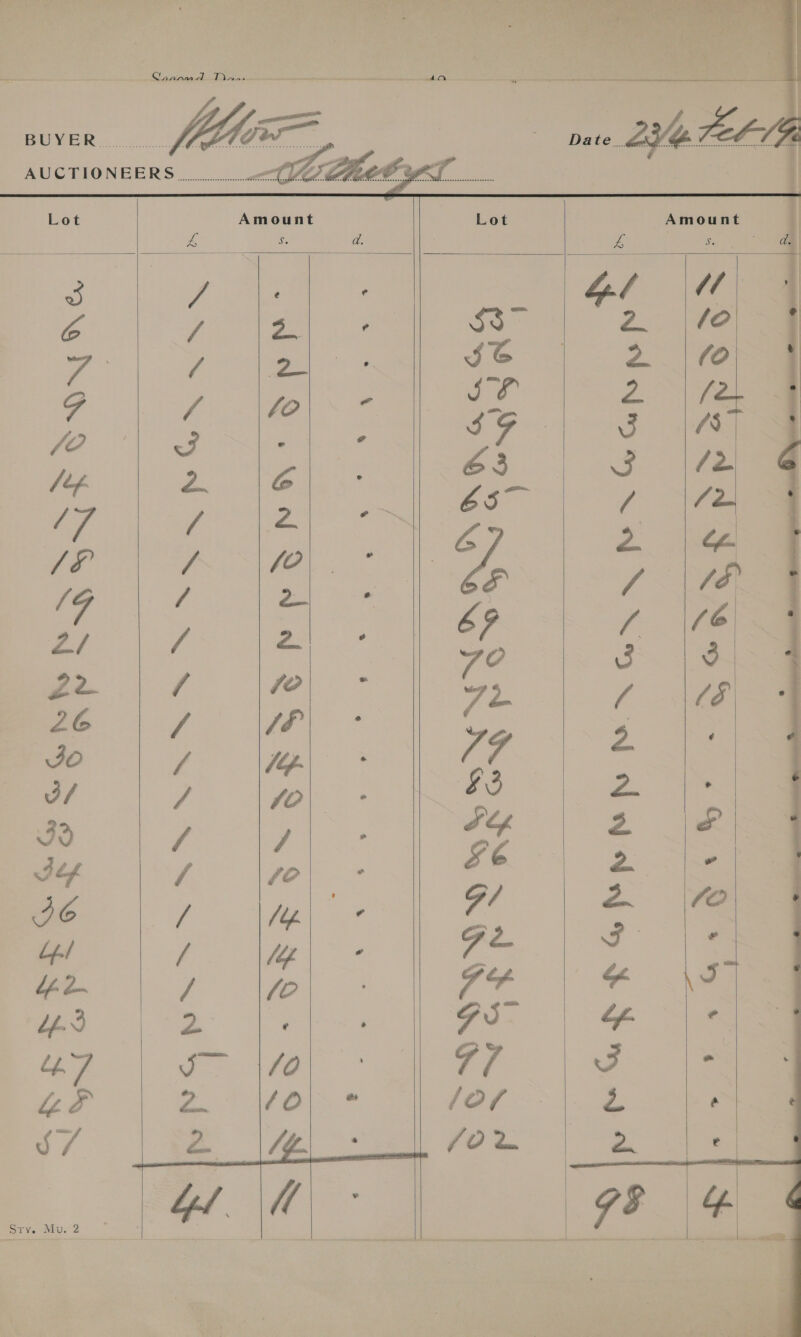 BUYER Date 23/4 Feb/19
AUCTIONEERS Sothebys
Lot Amount Lot Amount
£ s. d. £ s. d.
3 1 . . 41 11 .
6 1 2 . 53 2 10 .
7 1 2 . 56 2 10 .
9 1 10 . 58 2 12 .
10 3 . . 59 3 15 .
14 2 6 . 63 3 12 6
17 1 2 . 65 1 12 .
18 1 10 . 67 2 4
19 1 2 . 68 1 18 .
21 1 2 . 69 1 16 .
22 1 10 . 70 3 3 .
26 1 18 . 72 1 18 .
30 1 14 . 79 2 . .
31 1 10 . 83 2 . .
33 1 1 . 84 2 8 .
34 1 10 . 86 2 . .
36 1 14 . 91 2 10 .
41 1 14 . 92 3 . .
42 1 10 . 94 4 5 .
43 2 . . 95 4 . .
47 5 10 . 97 3 . .
48 2 10 . 101 2 . .
51 2 14 . 102 2 . .
41 11 . 98 4 6
Sty. Mu. 2